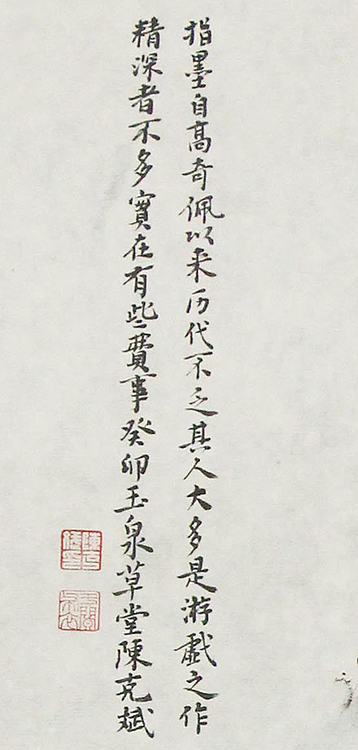 指墨自高奇佩以来历代不乏其人大多是游戏之作
精深者不多實在有些費事癸卯玉泉草堂陳克斌